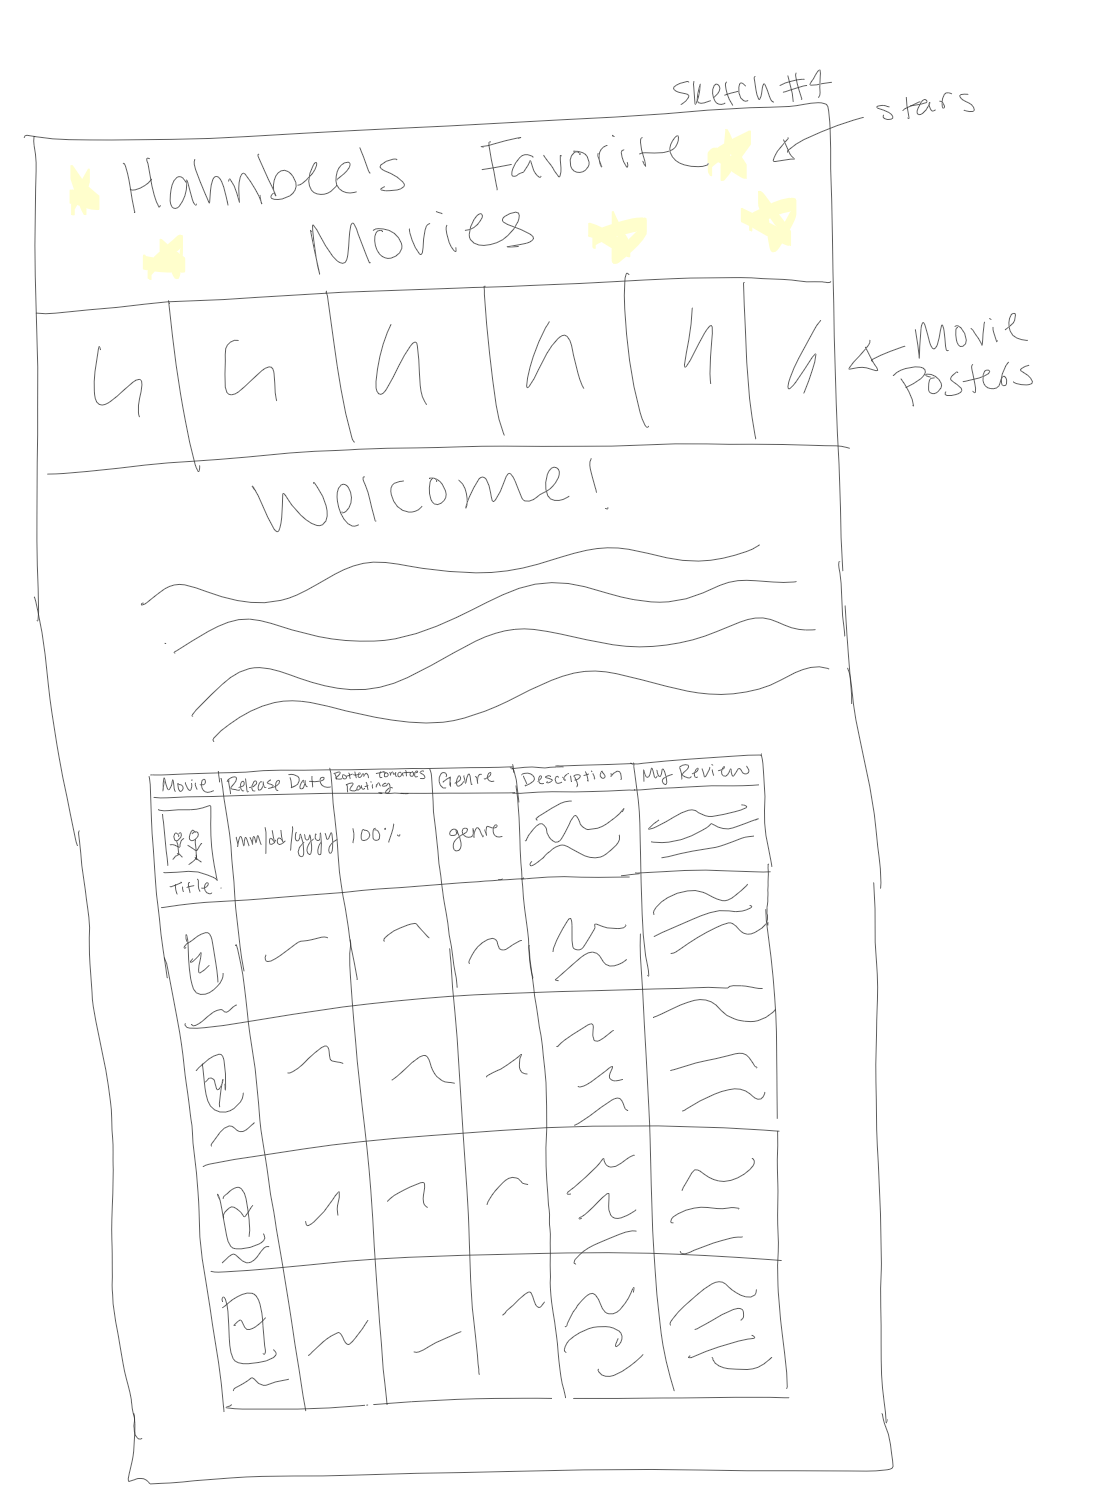 Sketch #4
stars
Hahnbee's Favorite
Movies
Movie
Posters
Welcome!
Movie
Release Date
Rotten Tomatoes
Rating
Genre
Description
My Review
mm/dd/yyyy
100%
genre
Title